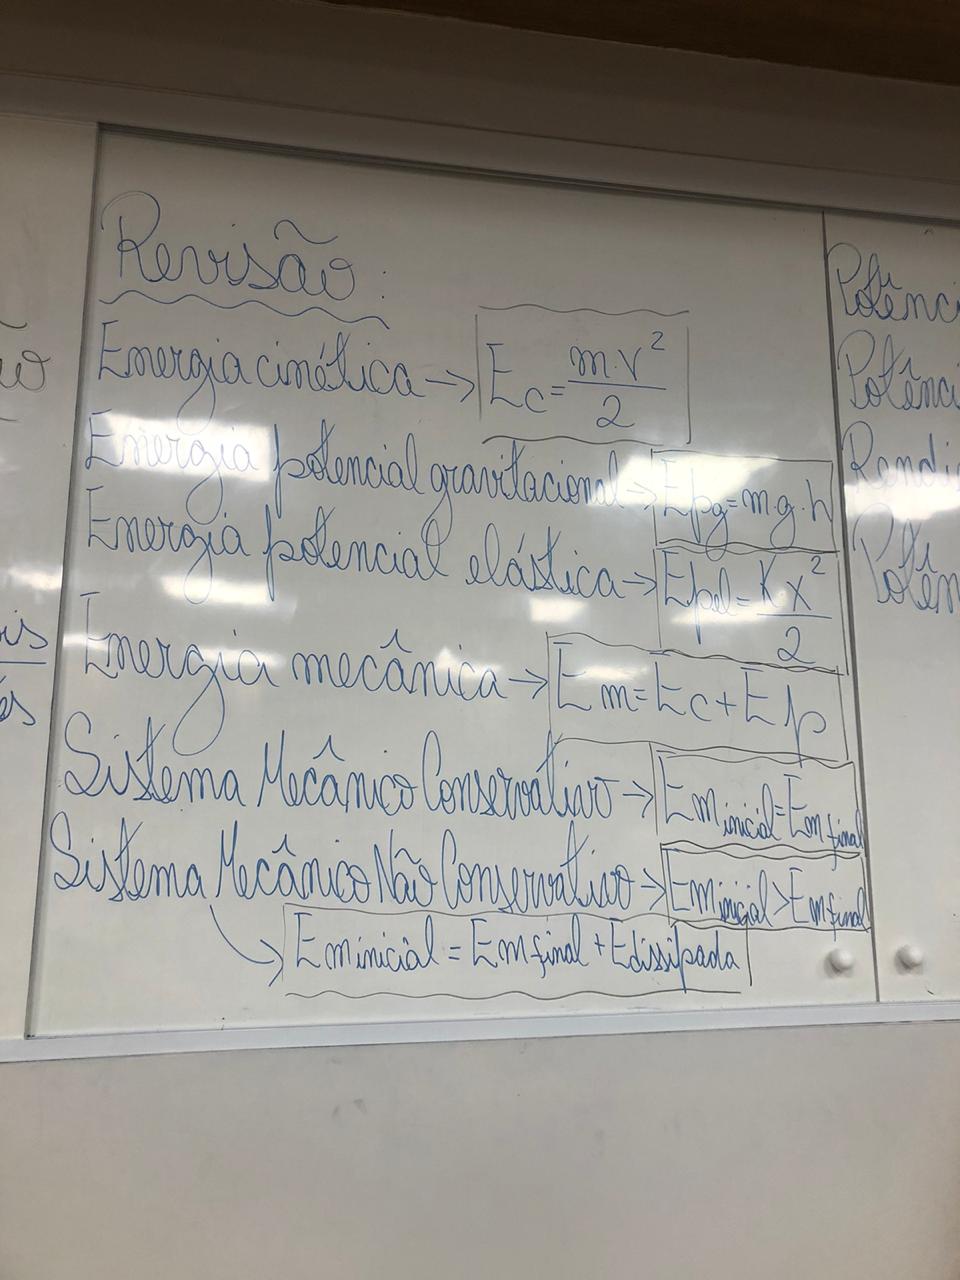 Revisão:
Energia cinética → Ec = m.v² / 2
Energia potencial gravitacional → Epg = m.g.h
Energia potencial elástica → Epel = Kx² / 2
Energia mecânica → Em = Ec + Ep
Sistema Mecânico Conservativo → Em inicial = Em final
Sistema Mecânico Não Conservativo → Em inicial > Em final
→ Em inicial = Em final + Edissipada